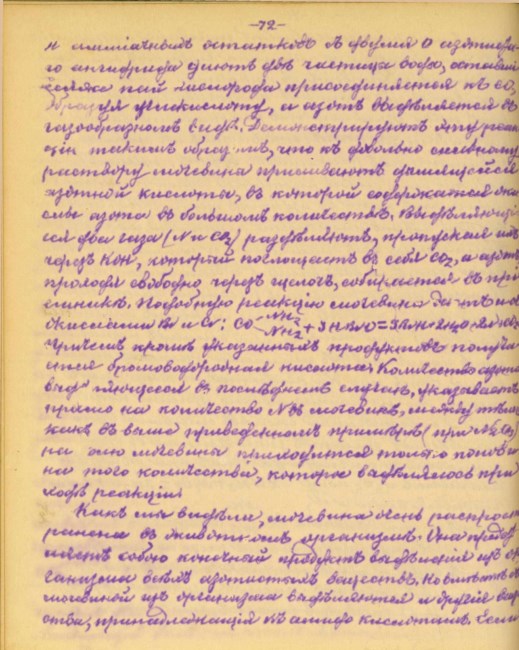 -72-
и амміачныхъ остатковъ съ двумя О азотиста-
го ангидрида даютъ двѣ частицы воды, оставші
пай кислорода присоединяется къ СО,
образуя углекислоту, и азотъ выдѣляется въ
газообразномъ видѣ. Демонстрируютъ эту реак
цію такимъ образомъ, что къ довольно сильному
раствору мочевины приливаютъ дымящейся
азотной кислоты, въ которой содержатся оки
слы азота въ большомъ количествѣ. Выдѣляющі
еся два газа (N и CO2) раздѣляютъ, пропуская ихъ
черезъ KOH, который поглощаетъ въ себя CO2, а азотъ
проходя свободно черезъ щелочь, собирается въ прі
емникъ. Подобную реакцію мочевина даетъ и съ
Br и Cr: CO NH2 NH2 + 3HBrO = 3BrH + 2H2O
причемъ кромѣ указанныхъ продуктовъ получа
ется бромоводородная кислота. Количество азота
выдѣляющееся въ послѣднемъ случаѣ, указываетъ
прямо на количество N въ мочевинѣ, между тѣмъ
какъ въ выше приведенномъ примѣрѣ (при
на долю мочевины приходится только полови
на того количества, которое выдѣлялось при
ходѣ реакціи.
Какъ мы видѣли, мочевина очень распрост
ранена въ животномъ организмѣ. Она предст
авляетъ собою конечный продуктъ выдѣленія изъ ор
ганизма всѣхъ азотистыхъ веществъ. Но вмѣстѣ съ
мочевиной изъ организма выдѣляются и другія веще
ства, принадлежащія къ амидо кислотамъ. Если